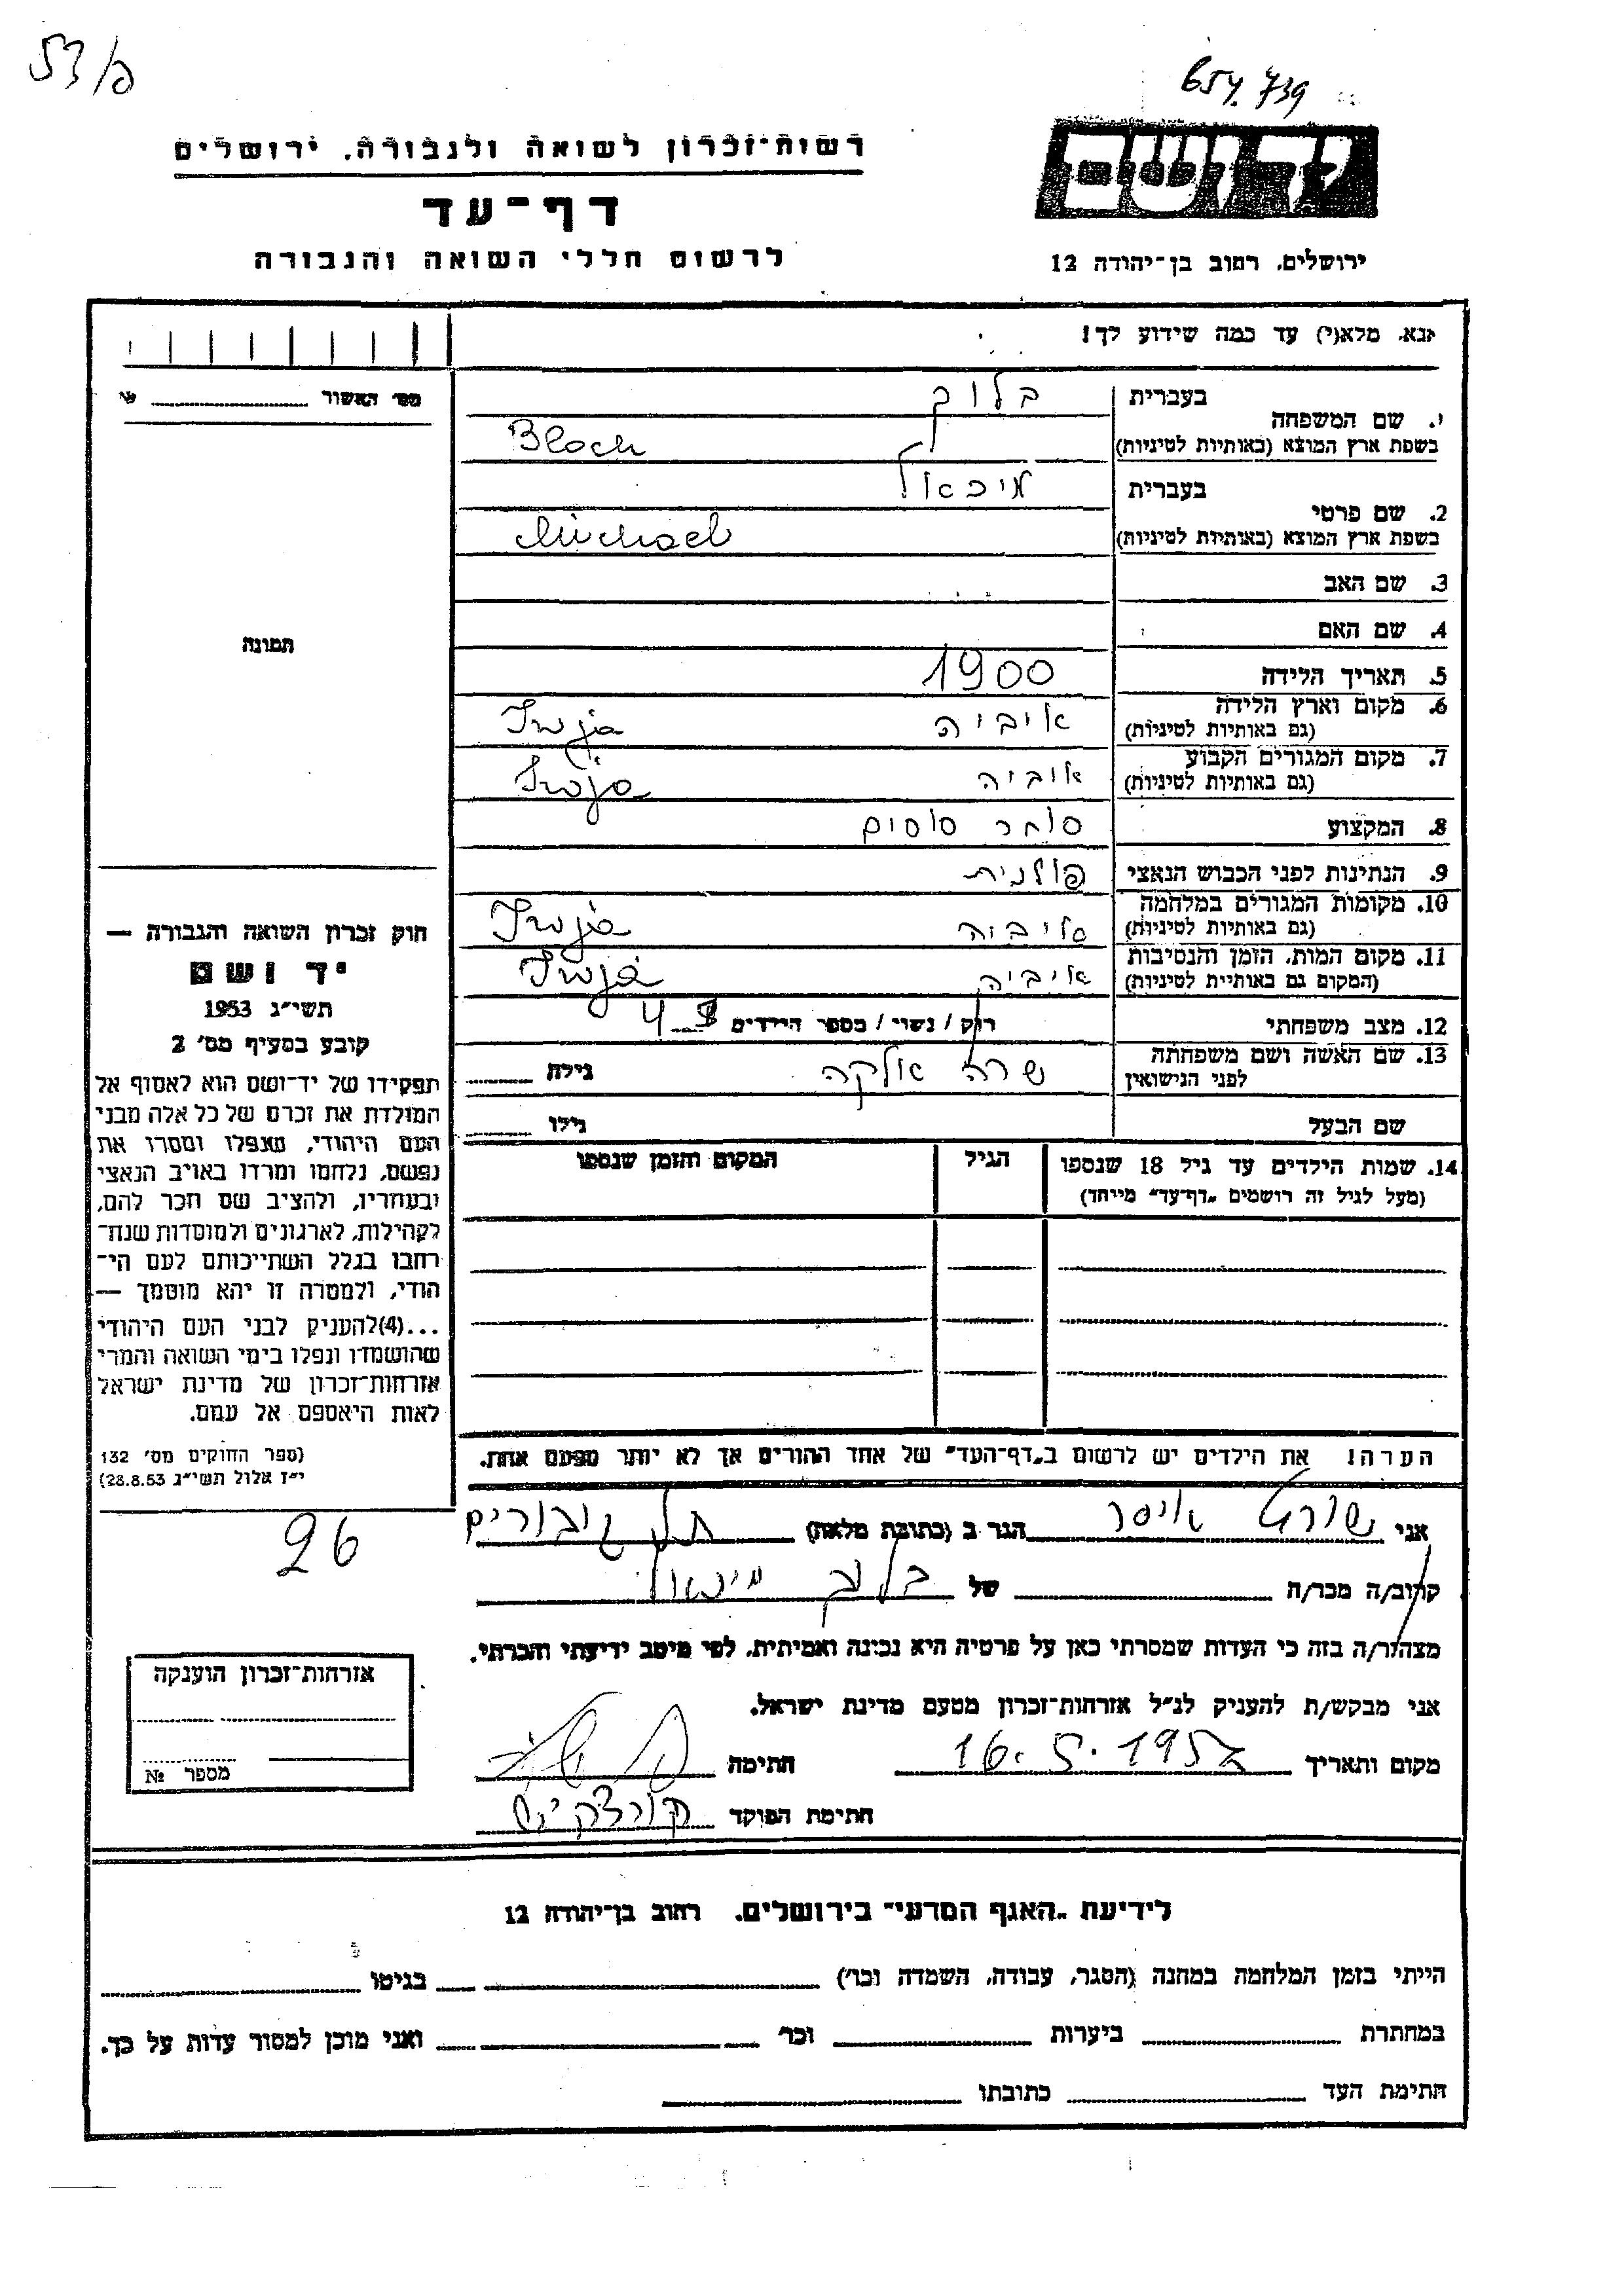 53/פ
654.739
רשות־זכרון לשואה ולגבורה, ירושלים
יד ושם
דף־עד
לרשום חללי השואה והגבורה
ירושלים, רחוב בן־יהודה 12
נא, מלא(י) עד כמה שידוע לך!
מס' האשור
1. שם המשפחה
בעברית בלוך
בשפת ארץ המוצא (באותיות לטיניות) Bloch
2. שם פרטי
בעברית מיכאל
בשפת ארץ המוצא (באותיות לטיניות) Michael
3. שם האב
4. שם האם
תמונה
5. תאריך הלידה 1900
6. מקום וארץ הלידה איביה Iwja
(גם באותיות לטיניות)
7. מקום המגורים הקבוע איביה Iwja
(גם באותיות לטיניות)
8. המקצוע סוחר סוסים
9. הנתינות לפני הכבוש הנאצי פולנית
10. מקומות המגורים במלחמה איביה Iwja
(גם באותיות לטיניות)
11. מקום המות, הזמן והנסיבות איביה Iwja
(המקום גם באותיות לטיניות)
12. מצב משפחתי רוק / נשוי / מספר הילדים 4
13. שם האשה ושם משפחתה שרה אלקה גילה
לפני הנישואין
שם הבעל גילו
14. שמות הילדים עד גיל 18 שנספו הגיל המקום והזמן שנספו
(מעל לגיל זה רושמים „דף־עד" מיוחד)
חוק זכרון השואה והגבורה —
יד ושם
תשי"ג 1953
קובע בסעיף מס' 2
תפקידו של יד־ושם הוא לאסוף אל
המולדת את זכרם של כל אלה מבני
העם היהודי, שנפלו ומסרו את
נפשם, נלחמו ומרדו באויב הנאצי
ובעוזריו, ולהציב שם וזכר להם,
לקהילות, לארגונים ולמוסדות שנח־
רבו בגלל השתייכותם לעם הי־
הודי, ולמטרה זו יהא מוסמך —
...(4)להעניק לבני העם היהודי
שהושמדו ונפלו בימי השואה והמרי
אזרחות־זכרון של מדינת ישראל
לאות היאספם אל עמם.
(ספר החוקים מס' 132
י"ז אלול תשי"ג 28.8.53)
הערה! את הילדים יש לרשום ב„דף־העד" של אחד ההורים אך לא יותר מפעם אחת.
26
אני איסר הגר ב (כתובת מלאה) תל גיבורים
קרוב/ה מכר/ה של בלוך מיכאל
מצהיר/ה בזה כי העדות שמסרתי כאן על פרטיה היא נכונה ואמיתית, לפי מיטב ידיעתי והכרתי.
אני מבקש/ת להעניק לנ"ל אזרחות־זכרון מטעם מדינת ישראל.
מקום ותאריך 16.5.1957 חתימה
חתימת הפוקד
אזרחות־זכרון הוענקה
מספר №
לידיעת „האגף המדעי" בירושלים, רחוב בן־יהודה 12
הייתי בזמן המלחמה במחנה (הסגר, עבודה, השמדה וכו') בגיטו
במחתרת ביערות וכו' ואני מוכן למסור עדות על כך.
חתימת העד כתובתו